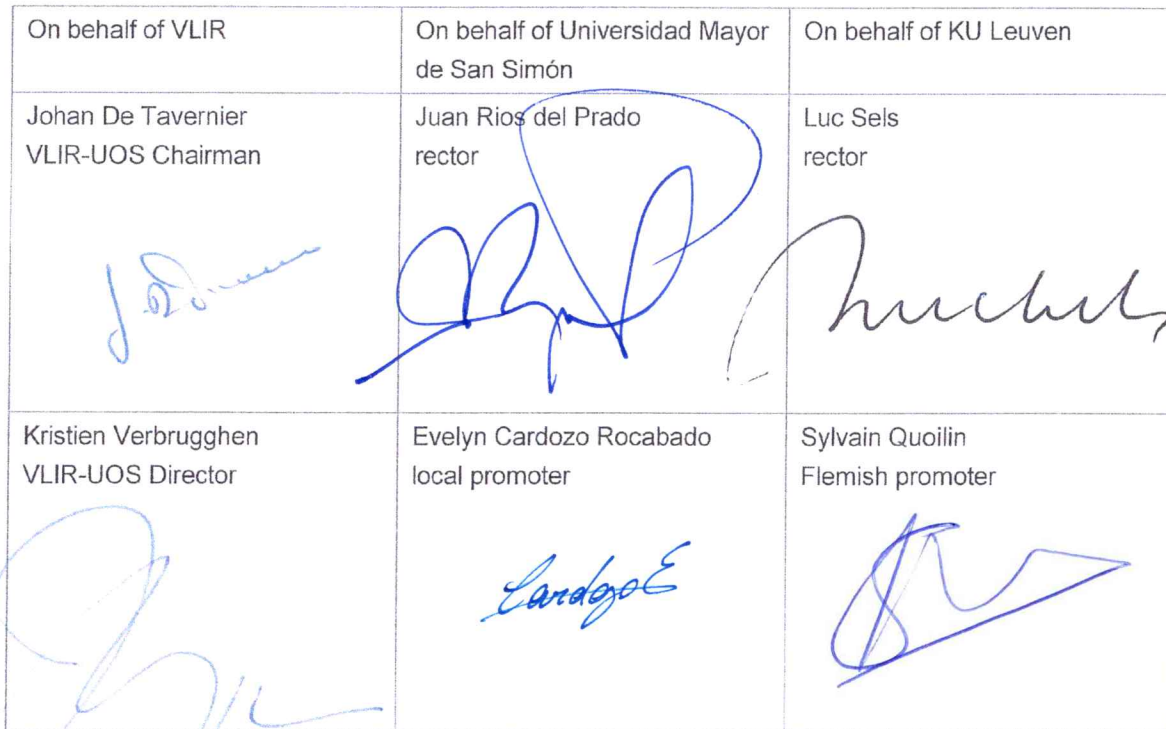 On behalf of VLIR
On behalf of Universidad Mayor
de San Simón
On behalf of KU Leuven
Johan De Tavernier
VLIR-UOS Chairman
Juan Rios del Prado
rector
Luc Sels
rector
Kristien Verbrugghen
VLIR-UOS Director
Evelyn Cardozo Rocabado
local promoter
Cardozo E
Sylvain Quoilin
Flemish promoter